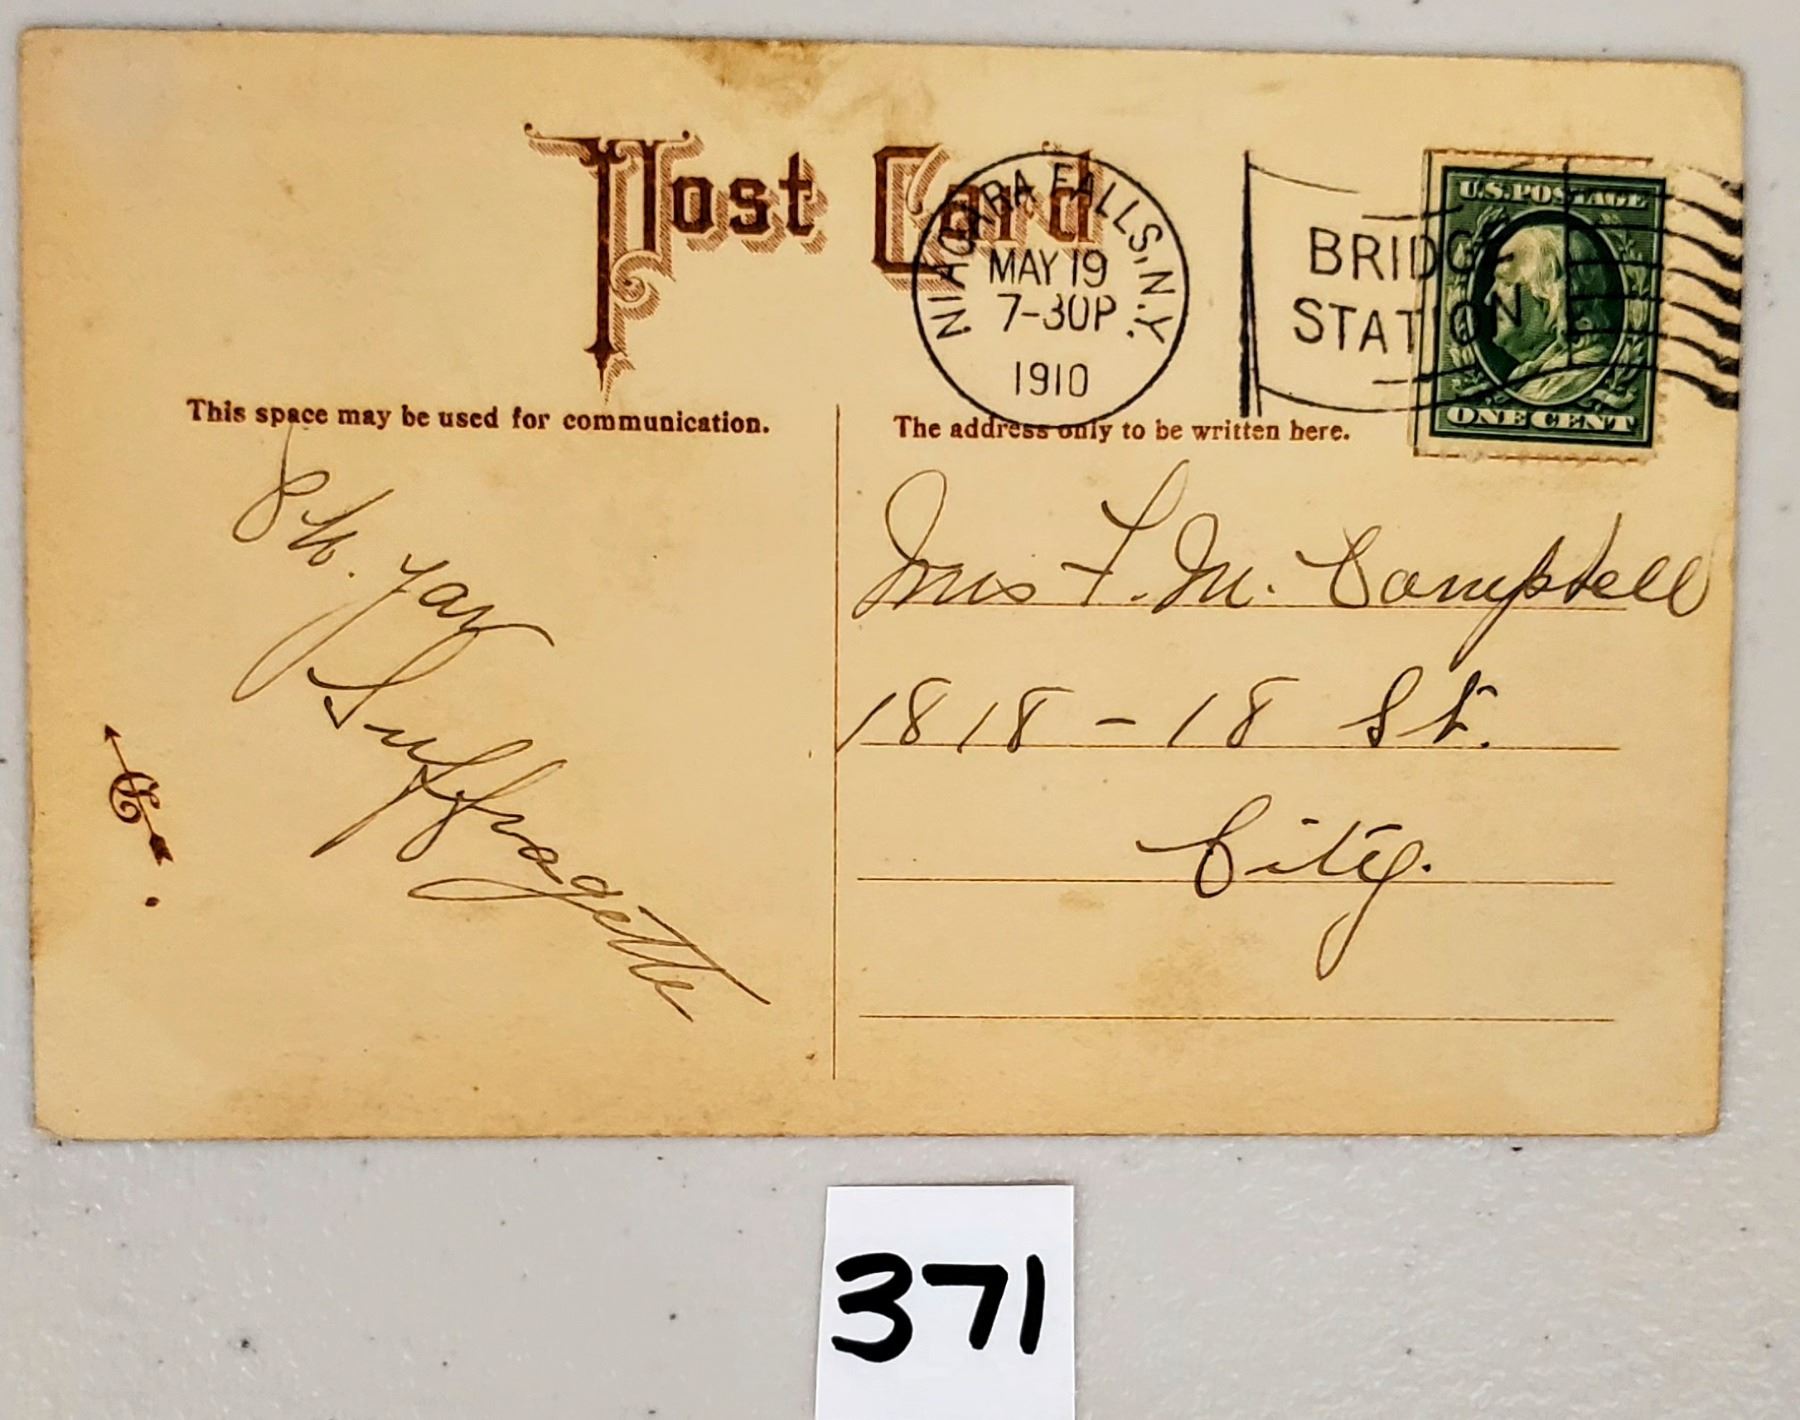 Post Card
NIAGARA FALLS, N.Y.
MAY 19
7-30P
1910
BRIDGE
STATION
U.S. POSTAGE
ONE CENT
This space may be used for communication.
The address only to be written here.
Oh. you
Suffragette
Mrs F. M. Campbell
1818 - 18 St.
City.
371